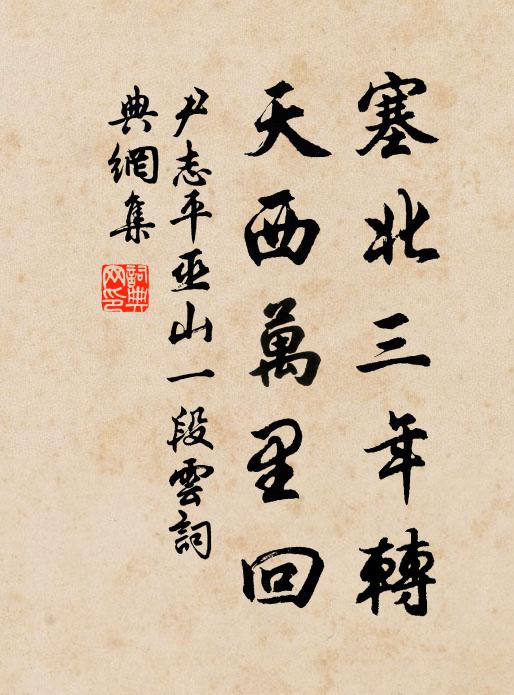 塞北三年轉
天西萬里回
尹志平巫山一段雲詞
典網集
詞典
网印